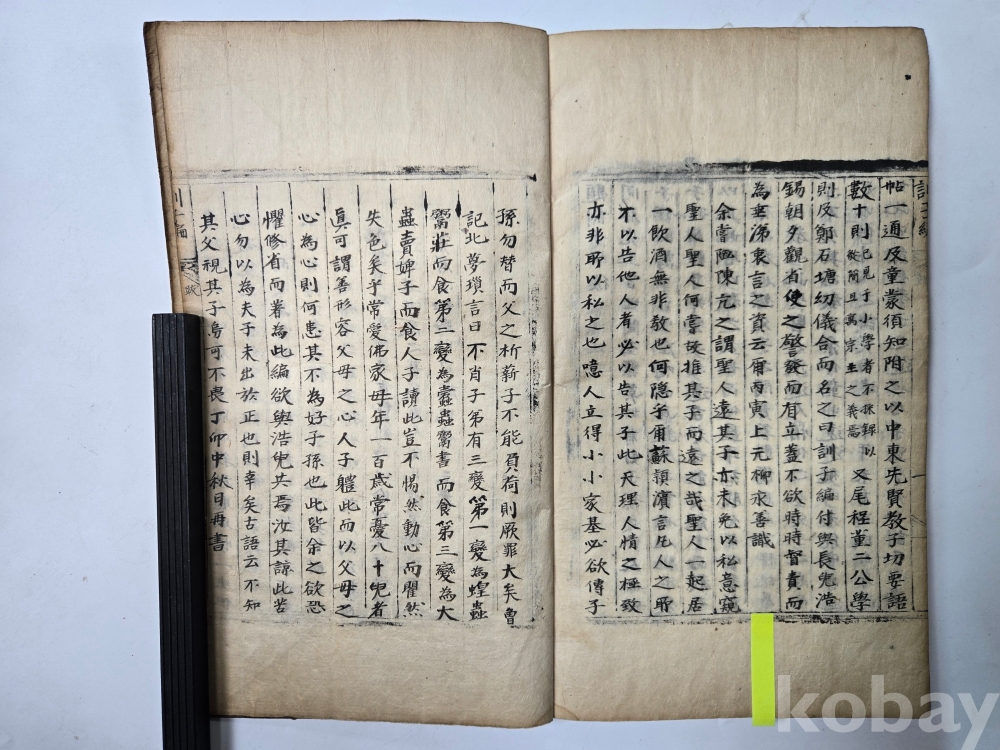 帖一通及童蒙須知附之以中東先賢教子切要語
數十則已見于小學者不採錄以從簡且寓宗主之義焉又尾程董二公學
則及鄭石塘幼儀合而名之曰訓子編付與長兒浩
錫朝夕觀省使之警發而有立盖不欲時時督責而
為垂涕衷言之資云爾丙寅上元柳求善識
余嘗陋陳亢之謂聖人遠其子亦未免以私意窺
聖人聖人何嘗故推其子而遠之哉聖人一起居
一飲酒無非教也何隱乎爾蘇潁濱言凡人之所
不以告他人者必以告其子此天理人情之極致
亦非所以私之也噫人立得小小家基必欲傳子
孫勿替而父之析薪子不能負荷則厥罪大矣魯
記北夢瑣言曰不肖子弟有三變第一變為蝗蟲
鬻莊而食第二變為蠹蟲鬻書而食第三變為大
蟲賣婢子而食人子讀此豈不惕然動心而瞿然
失色矣乎常愛佛家母年一百歲常憂八十兒者
眞可謂善形容父母之心人子軆此而以父母之
心為心則何患其不為好子孫也此皆余之欲恐
懼修省而著為此編欲與浩兒共焉汝其諒此苦
心勿以為夫子未出於正也則幸矣古語云不知
其父視其子烏可不畏丁卯中秋日再書
訓子編 跋
kobay